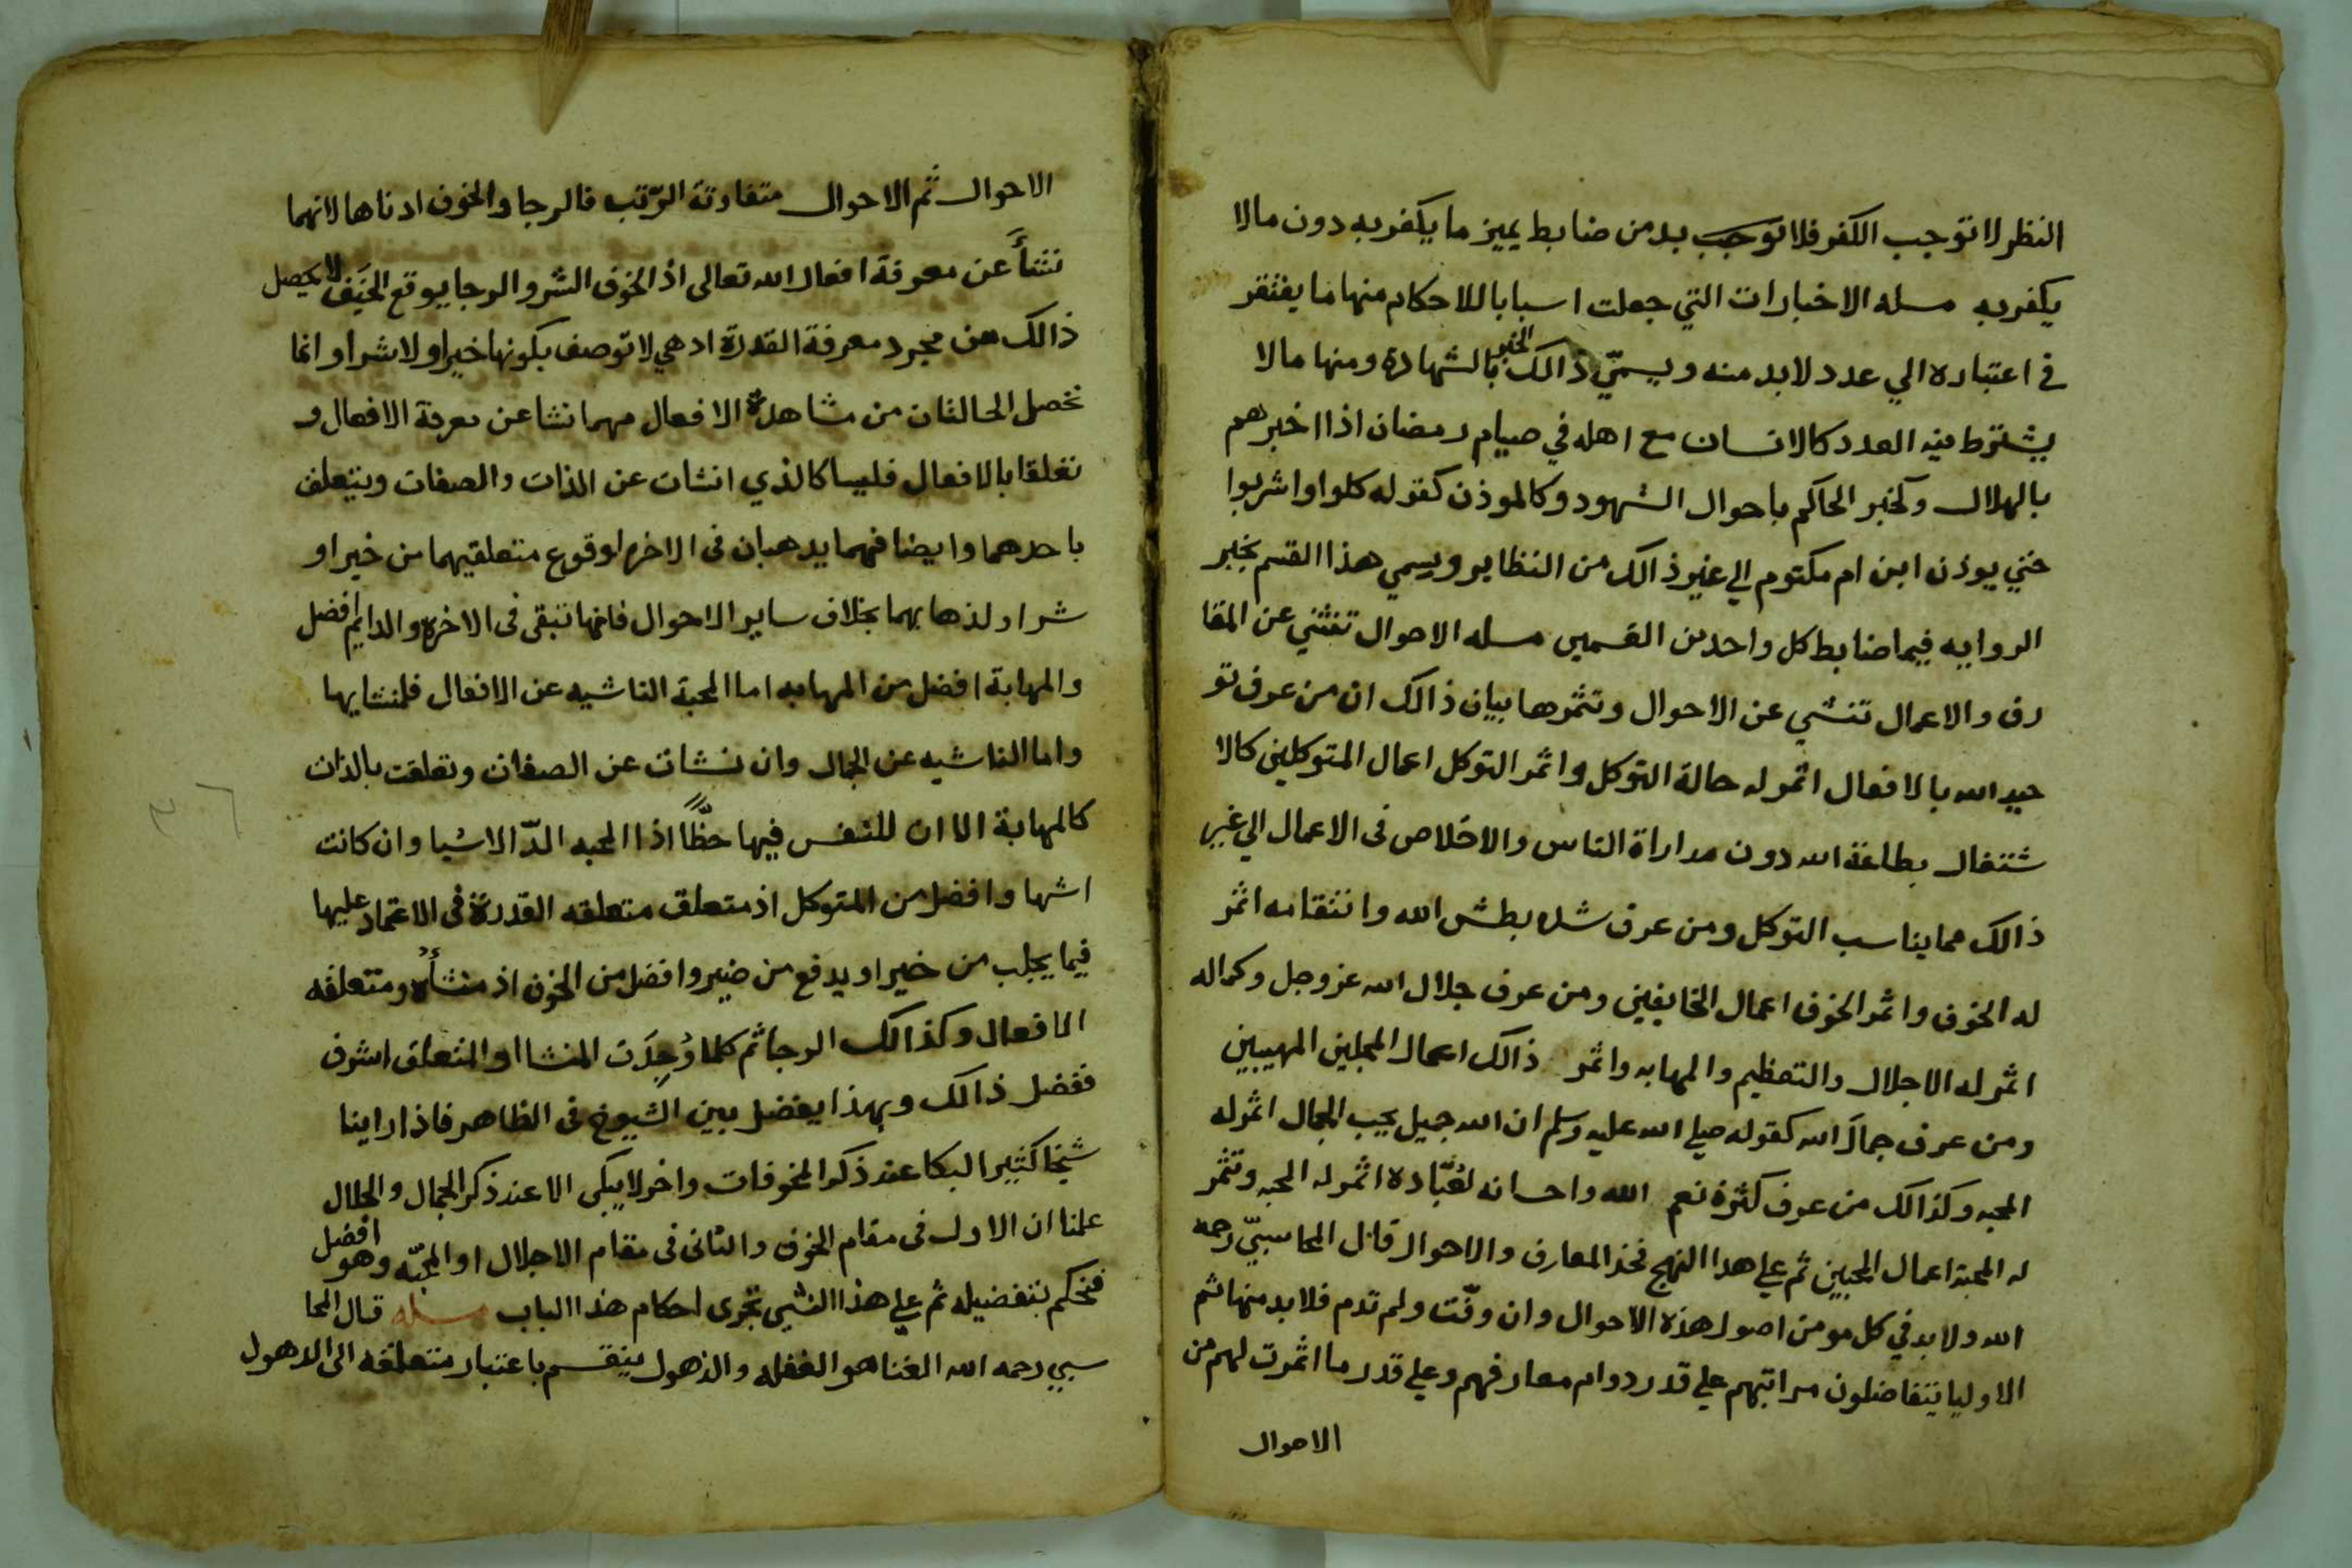 النظر لا توجب الكفر فلا توجب بد من ضابط يميز ما يكفر به دون ما لا
يكفر به مسله الاخبارات التي جعلت اسبابا للاحكام منها ما يفتقر
في اعتباره الي عدد لا بد منه ويسمّي ذالك الخبر بالشهادة ومنها ما لا
يشترط فيه العدد كالانسان مع اهله في صيام رمضان اذا اخبرهم
بالهلال وكخبر الحاكم باحوال الشهود وكالموذن كقوله كلوا واشربوا
حتي يوذن ابن ام مكتوم الي غير ذالك من النظاير ويسمي هذا القسم بخبر
الروايه فيما ضابط كل واحد من القسمين مسله الاحوال تنشي عن المعا
رف والاعمال تنشي عن الاحوال وتثمرها بيان ذالك ان من عرف تو
حيد الله بالافعال اثمر له حالة التوكل واثمر التوكل اعمال المتوكلين كالا
شتغال بطاعة الله دون مداراة الناس والاخلاص فى الاعمال الي غير
ذالك مما يناسب التوكل ومن عرف شده بطش الله وانتقامه اثمر
له الخوف واثمر الخوف اعمال الخايفين ومن عرف جلال الله عز وجل وكماله
اثمر له الاجلال والتعظيم والمهابه واثمر ذالك اعمال المجلين المهيبين
ومن عرف جمال الله كقوله صلي الله عليه وسلم ان الله جميل يحب الجمال اثمر له
المحبه وكذالك من عرف كثرة نعم الله واحسانه لعُبّاده اثمر له المحبه وتثمر
له المحبة اعمال المحبين ثم علي هدا النهج فخذ المعارف والاحوال قال المحاسبيّ رحمه
الله ولا بد في كل مومن اصول هذه الاحوال وان وقّت ولم تدم فلا بد منها ثم
الاوليا يتفاضلون مراتبهم علي قدر دوام معارفهم وعلي قدر ما اثمرت لهم من
الاحوال
الاحوال ثم الاحوال متفاوتة الرّتب فالرجا والخوف ادناها لانهما
نشأَ عن معرفة افعال الله تعالى اذ الخوف الشر والرجا يوقع الخَير لا يحصل
ذالك من مجرد معرفة القدرة اد هي لا توصف بكونها خيرا ولا شرا وانما
تحصل الحالتان من مشاهدة الافعال مهما نشا عن معرفة الافعال و
تعلقا بالافعال فليسا كالذي انشات عن الذات والصفات ويتعلق
باحدهما وايضا فهما يدهبان فى الاخره لوقوع متعلقيهما من خير او
شر اد لذهابهما بخلاف ساير الاحوال فانها تبقى فى الاخره والدايم افضل
والمهابة افضل من المهابه اما المحبة الناشيه عن الافعال فلمنشايها
واما الناشيه عن الجمال وان نشات عن الصفات وتعلقت بالذات
كالمهابة الا ان للنفس فيها حظًّا اذا المحبه الدّ الاشيا وان كانت
اشها وافضل من المتوكل اذ متعلق متعلقه القدرة فى الاعتماد عليها
فيما يجلب من خير او يدفع من ضير وافضل من الخوف اذ منشأه ومتعلقه
الافعال وكذالك الرجا ثم كلما وُجِدَت المنشا او المتعلق اشرف
ففضل ذالك وبهذا يفضل بين الشيوخ فى الظاهر فاذا راينا
شيخا كثير البكا عند ذكر المخوفات واخر لا يبكي الا عند ذكر الجمال والجلال
علمنا ان الاول فى مقام الخوف والثانى فى مقام الاجلال او المحبّه وهو افضل
فحكم بتفضيله ثم علي هذا الشي تجرى احكام هذا الباب مسله قال المحا
سبي رحمه الله الغنا هو الغفله والذهول ينقسم باعتبار متعلقه الى الدهول